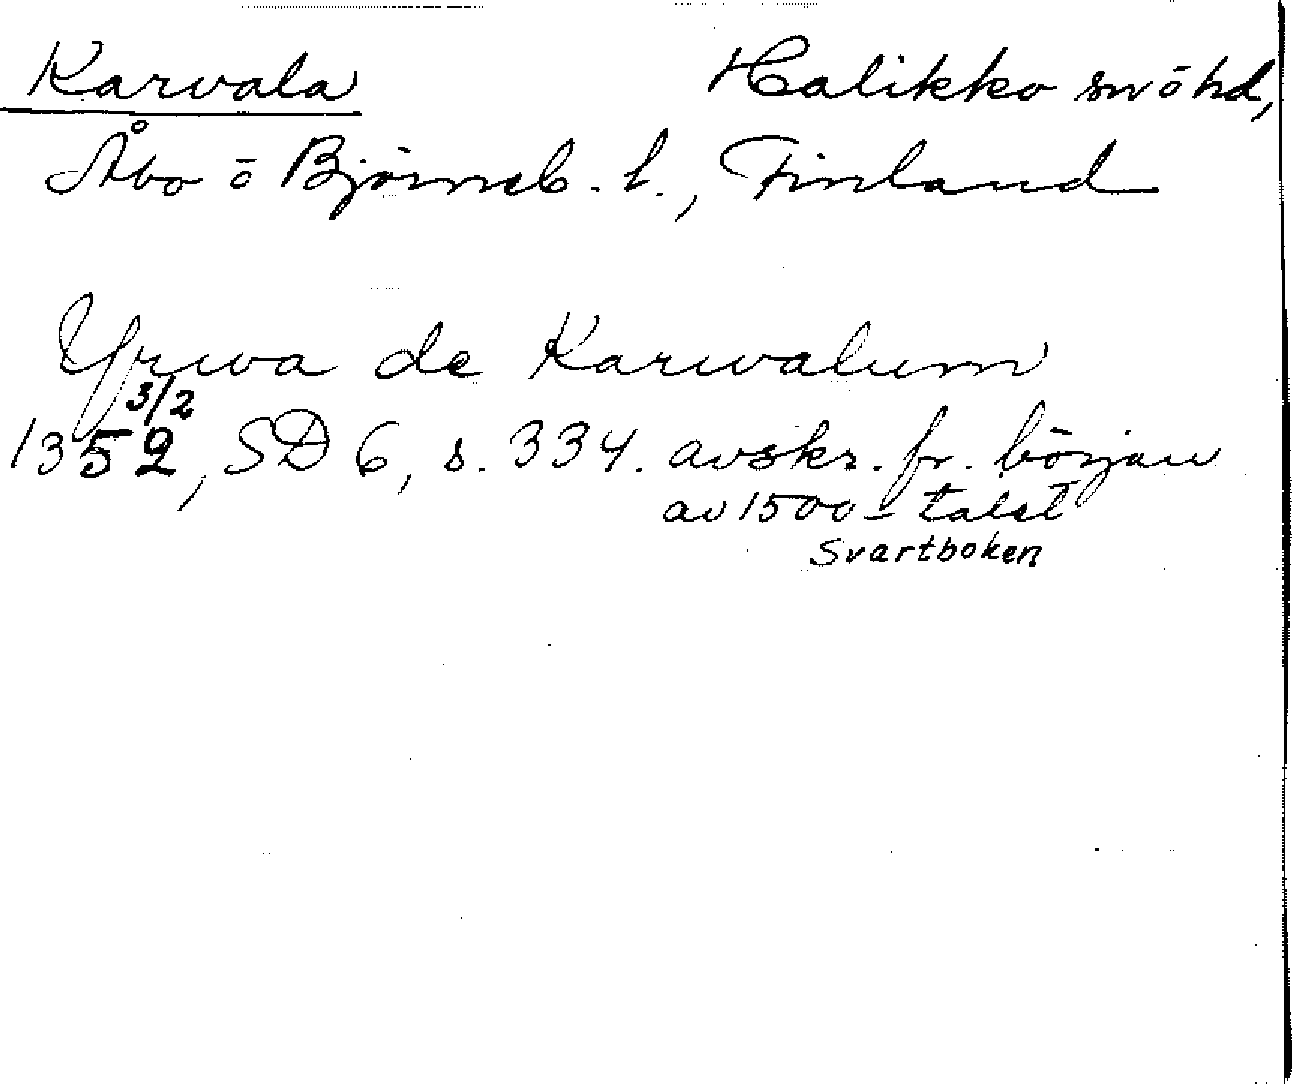 Karvala Halikko sn o hd,
Åbo o Björneb. l., Finland
Yrwa de Karwalum
1352 3/2, SD 6, s. 334. avskr. fr. början
av 1500-talet
Svartboken